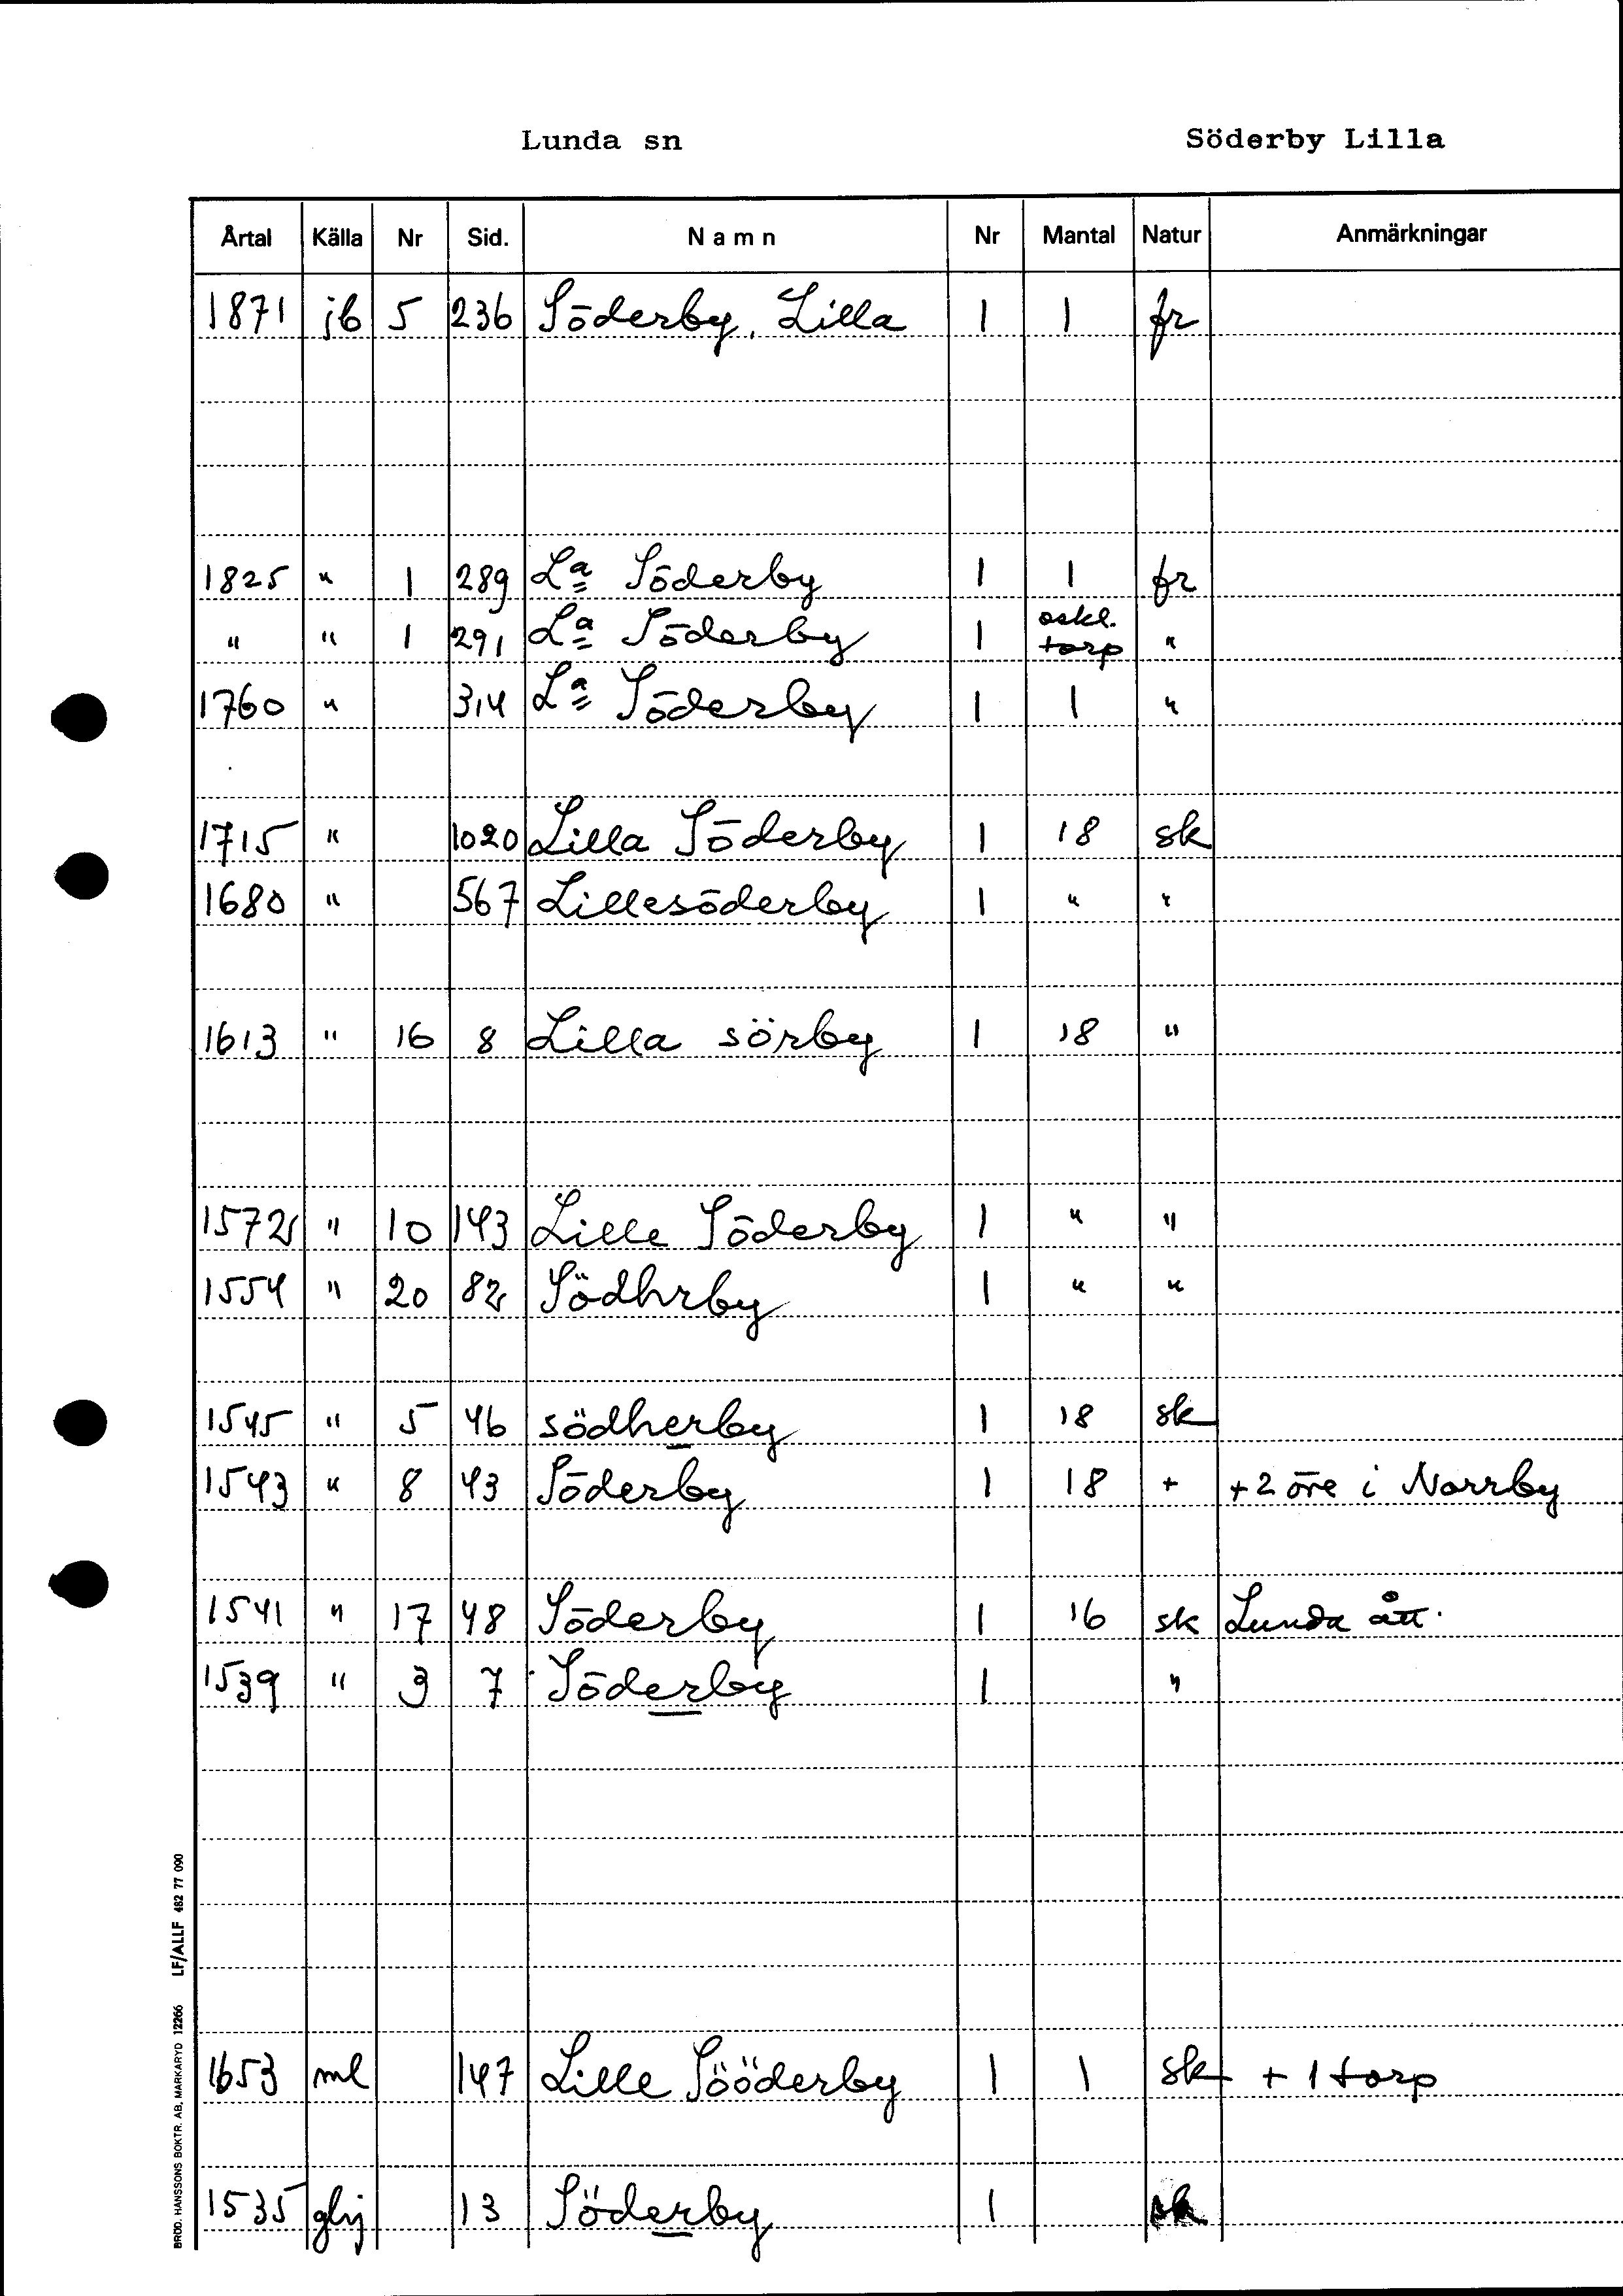 Lunda sn Söderby Lilla
Årtal Källa Nr Sid. Namn Nr Mantal Natur Anmärkningar
1871 jb 5 236 Söderby, Lilla 1 1 fr
1825 " 1 289 La Söderby 1 1 fr
" " 1 291 La Söderby 1 oskl. torp "
1760 " 314 La Söderby 1 1 "
1715 " 1020 Lilla Söderby 1 18 sk
1680 " 567 Lillesöderby 1 " "
1613 " 16 8 Lilla sörby 1 18 "
1572 " 10 143 Lille Söderby 1 " "
1554 " 20 82 Södhrby 1 " "
1545 " 5 46 södherby 1 18 sk
1543 " 8 43 Söderby 1 18 + +2 öre i Norrby
1541 " 17 48 Söderby 1 16 sk Lunda ått.
1539 " 3 7 Söderby 1 "
1653 ml 147 Lille Sööderby 1 1 sk + 1 torp
1535 glij 13 Söderby 1 sk
BRÖD. HANSSONS BOKTR. AB, MARKARYD 12266 LF/ALLF 462 77 090